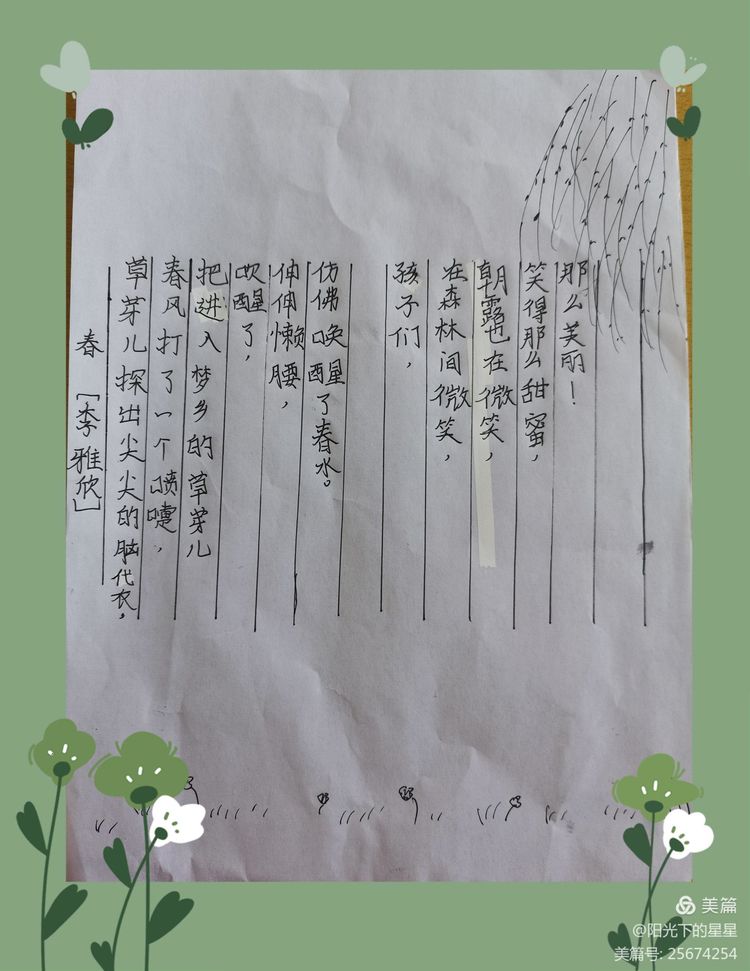 春 [李雅欣]
草芽儿探出尖尖的脑袋,
春风打了一个喷嚏,
把进入梦乡的草芽儿
吹醒了,
伸伸懒腰,
仿佛唤醒了春水。
孩子们,
在森林间微笑,
朝露也在微笑,
笑得那么甜蜜,
那么美丽!
美篇
@阳光下的星星
美篇号: 25674254